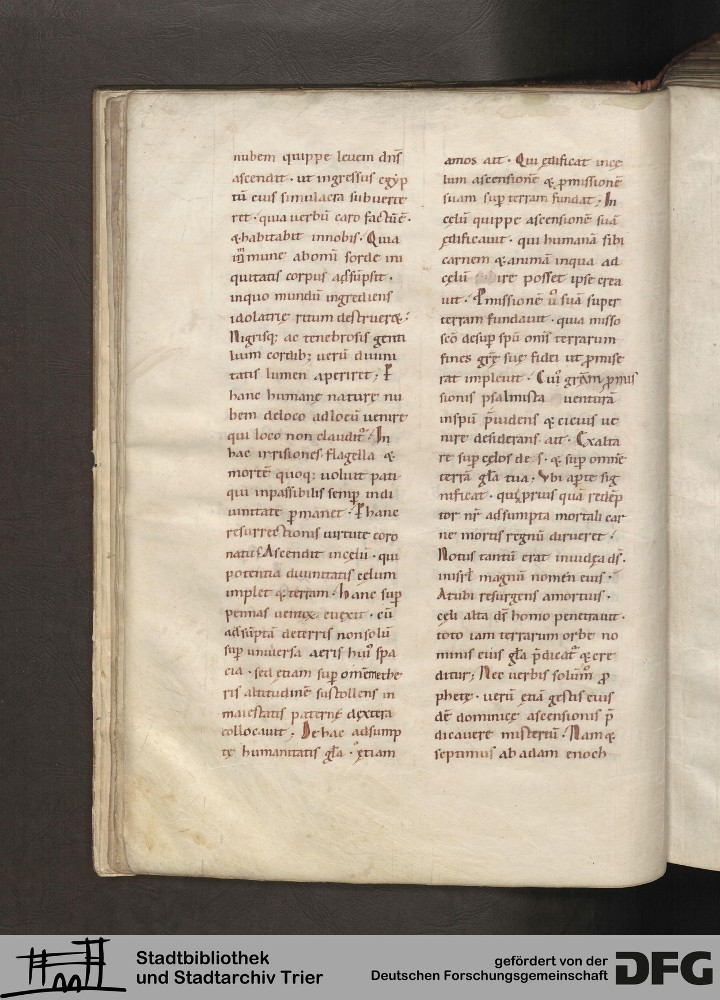 nubem quippe leuem dn̄s
ascendit · ut ingressus egẏp
tū eius simulacra subuerte
ret · quia uerbū caro factū ē ·
& habitabit innobis · Quia
immune abomni sorde ini
quitatis corpus adsūpsit ·
inquo mundū ingrediens
idolatrię ritum destruer& :
Nigrisq; ac tenebrosis genti
lium cordib; uerū diuini
tatis lumen aperiret ; P
hanc humanę naturę nu
bem deloco adlocū uenire
qui loco non claudit᷑ : In
hac irrisiones flagella &
mortē quoq; uoluit pati
qui inpassibilis semp̱ indi
uinitate p̱manet · P hanc
resurrectionis uirtute coro
natus Ascendit incęlū · qui
potentia diuinitatis cęlum
implet & terram · hanc sup̱
pennas uentoꝝ euexit · eū
adsūptā deterris nonsolū
sup̱ uniuersa aeris hui᷒ spa
cia · sed etiam sup̱ om̄em ethe
ris altitudinē sustollens in
maiestatis paternę dextera
collocauit ; De hac adsump
tę humanitatis gła · etiam
amos ait · Qui ędificat incę
lum ascensionē & p̱missionē
suam sup̱ terram fundat ; In
cęlū quippe ascensionē suā
ędificauit · qui humanā sibi
carnem & animā inqua ad
cęlū ire posset ipse crea
uit · P̱missionē u᷒ suā super
terram fundauit · quia misso
sc̄o desup̱ sp̄u om̄is terrarum
fines grę suę fidei ut p̱mise
rat impleuit · Cui᷒ gr̄am p̱mis
sionis psalmista uenturā
insp̄u p̄uidens & cicius ue
nire desiderans ait · Exalta
re sup̱ cęlos de s · & sup̱ omnē
terrā gła tua ; Vbi ap̱te sig
nificat · qui prius quā redēp
tor nr̄ adsumpta mortali car
ne mortis regnū dirueret :
Notus tantū erat iniudęa ds̄ ·
inisrł magnū nomen eius ·
At ubi resurgens amortuis ·
cęli alta ds̄ homo penetrauit ·
toto iam terrarum orbe no
minis eius gła p̄dicat᷑ & cre
ditur ; Nec uerbis solūm p̱
phetę · uerū etiā gestis eius
dē dominicę ascensionis p̄
dicauere misteriū : Nam &
septimus ab adam enoch
Stadtbibliothek
und Stadtarchiv Trier
gefördert von der
Deutschen Forschungsgemeinschaft
DFG